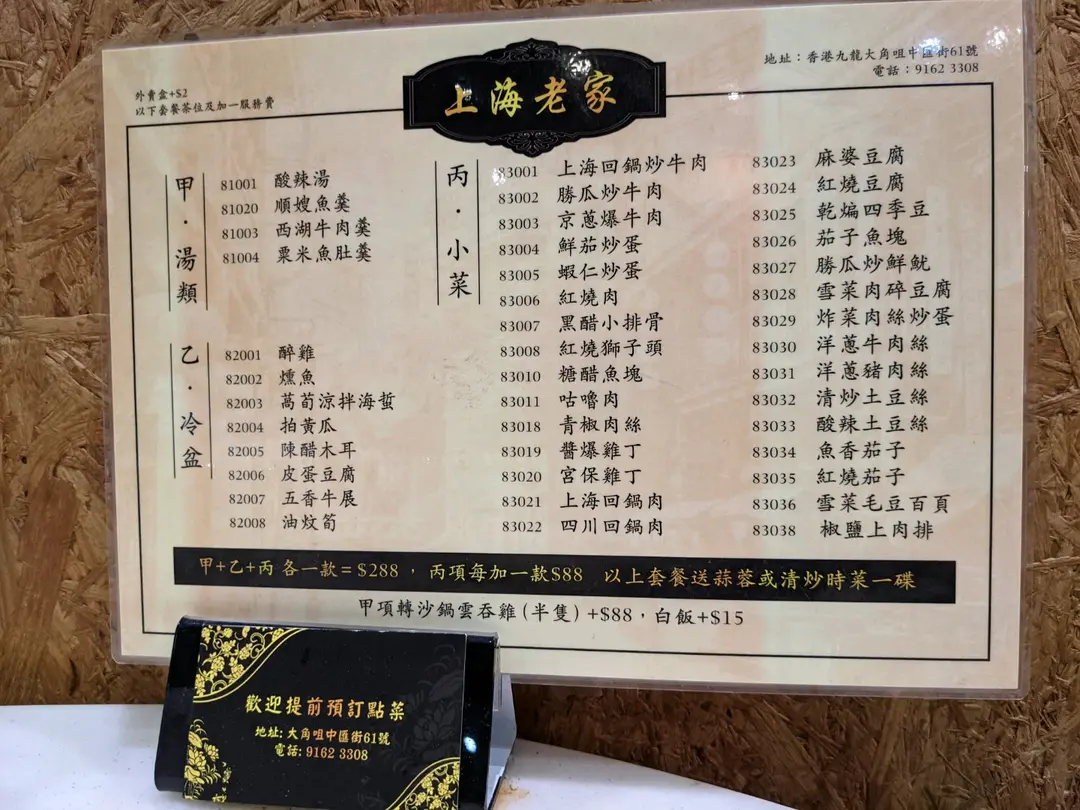 外賣盒+$2
以下套餐茶位及加一服務費
上海老家
地址：香港九龍大角咀中匯街61號
電話：9162 3308
甲·湯類
81001 酸辣湯
81020 順嫂魚羹
81003 西湖牛肉羹
81004 粟米魚肚羹
乙·冷盆
82001 醉雞
82002 燻魚
82003 萵荀涼拌海蜇
82004 拍黃瓜
82005 陳醋木耳
82006 皮蛋豆腐
82007 五香牛展
82008 油炆筍
丙·小菜
83001 上海回鍋炒牛肉
83002 勝瓜炒牛肉
83003 京蔥爆牛肉
83004 鮮茄炒蛋
83005 蝦仁炒蛋
83006 紅燒肉
83007 黑醋小排骨
83008 紅燒獅子頭
83010 糖醋魚塊
83011 咕嚕肉
83018 青椒肉絲
83019 醬爆雞丁
83020 宮保雞丁
83021 上海回鍋肉
83022 四川回鍋肉
83023 麻婆豆腐
83024 紅燒豆腐
83025 乾煸四季豆
83026 茄子魚塊
83027 勝瓜炒鮮魷
83028 雪菜肉碎豆腐
83029 炸菜肉絲炒蛋
83030 洋蔥牛肉絲
83031 洋蔥豬肉絲
83032 清炒土豆絲
83033 酸辣土豆絲
83034 魚香茄子
83035 紅燒茄子
83036 雪菜毛豆百頁
83038 椒鹽上肉排
甲+乙+丙 各一款=$288，丙項每加一款$88 以上套餐送蒜蓉或清炒時菜一碟
甲項轉沙鍋雲吞雞(半隻)+$88，白飯+$15
歡迎提前預訂點菜
地址: 大角咀中匯街61號
電話: 9162 3308